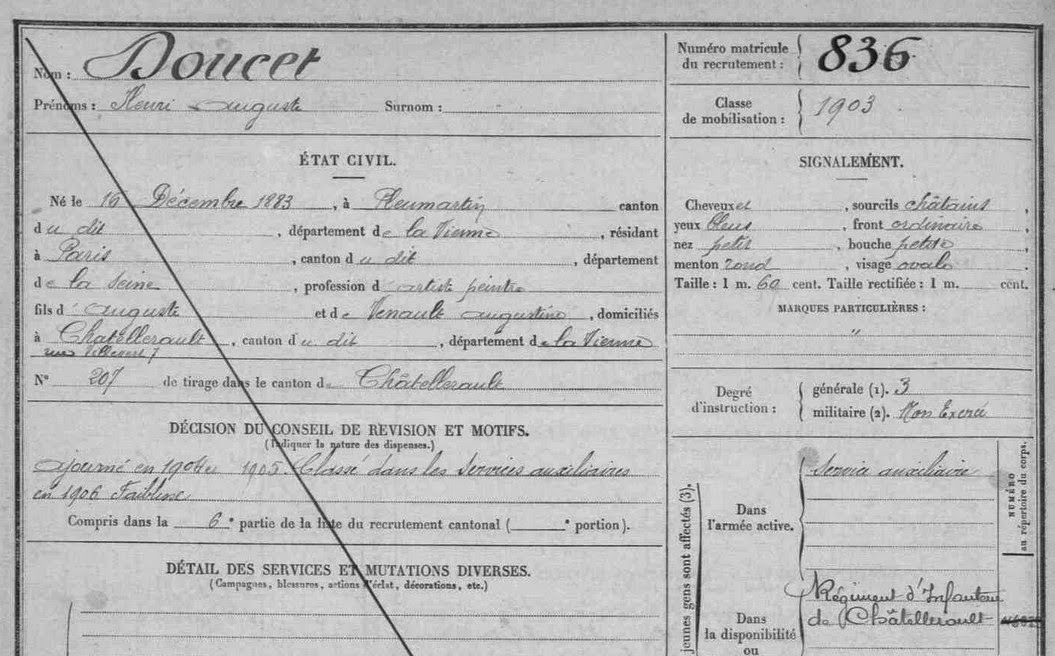 Nom : Doucet
Prénoms : Henri Auguste Surnom :
Numéro matricule du recrutement : 836
Classe de mobilisation : 1903
ÉTAT CIVIL.
Né le 16 Décembre 1883, à Pleumartin canton
du dit, département de la Vienne, résidant
à Paris, canton du dit, département
de la Seine, profession d'artiste peintre
fils d'Auguste et de Venault Augustine, domiciliés
à Chatellerault, canton du dit, département de la Vienne
rue 7
N° 207 de tirage dans le canton de Châtellerault
SIGNALEMENT.
Cheveux et, sourcils châtains,
yeux bleus, front ordinaire,
nez petit, bouche petite,
menton rond, visage ovale.
Taille : 1 m. 69 cent. Taille rectifiée : 1 m. cent.
MARQUES PARTICULIÈRES :
"
Degré d'instruction :
générale (1). 3
militaire (2). Non Exercé
DÉCISION DU CONSEIL DE REVISION ET MOTIFS.
(Indiquer la nature des dispenses.)
Ajourné en 1904 et 1905. Classé dans les Services auxiliaires
en 1906 Faiblesse
Compris dans la 6e partie de la liste du recrutement cantonal ( e portion).
DÉTAIL DES SERVICES ET MUTATIONS DIVERSES.
(Campagnes, blessures, actions d'éclat, décorations, etc.)
jeunes gens sont affectés (3).
Dans l'armée active.
Service auxiliaire
NUMÉRO
au répertoire du corps.
Dans
la disponibilité
ou
Régiment d'Infanterie
de Châtellerault